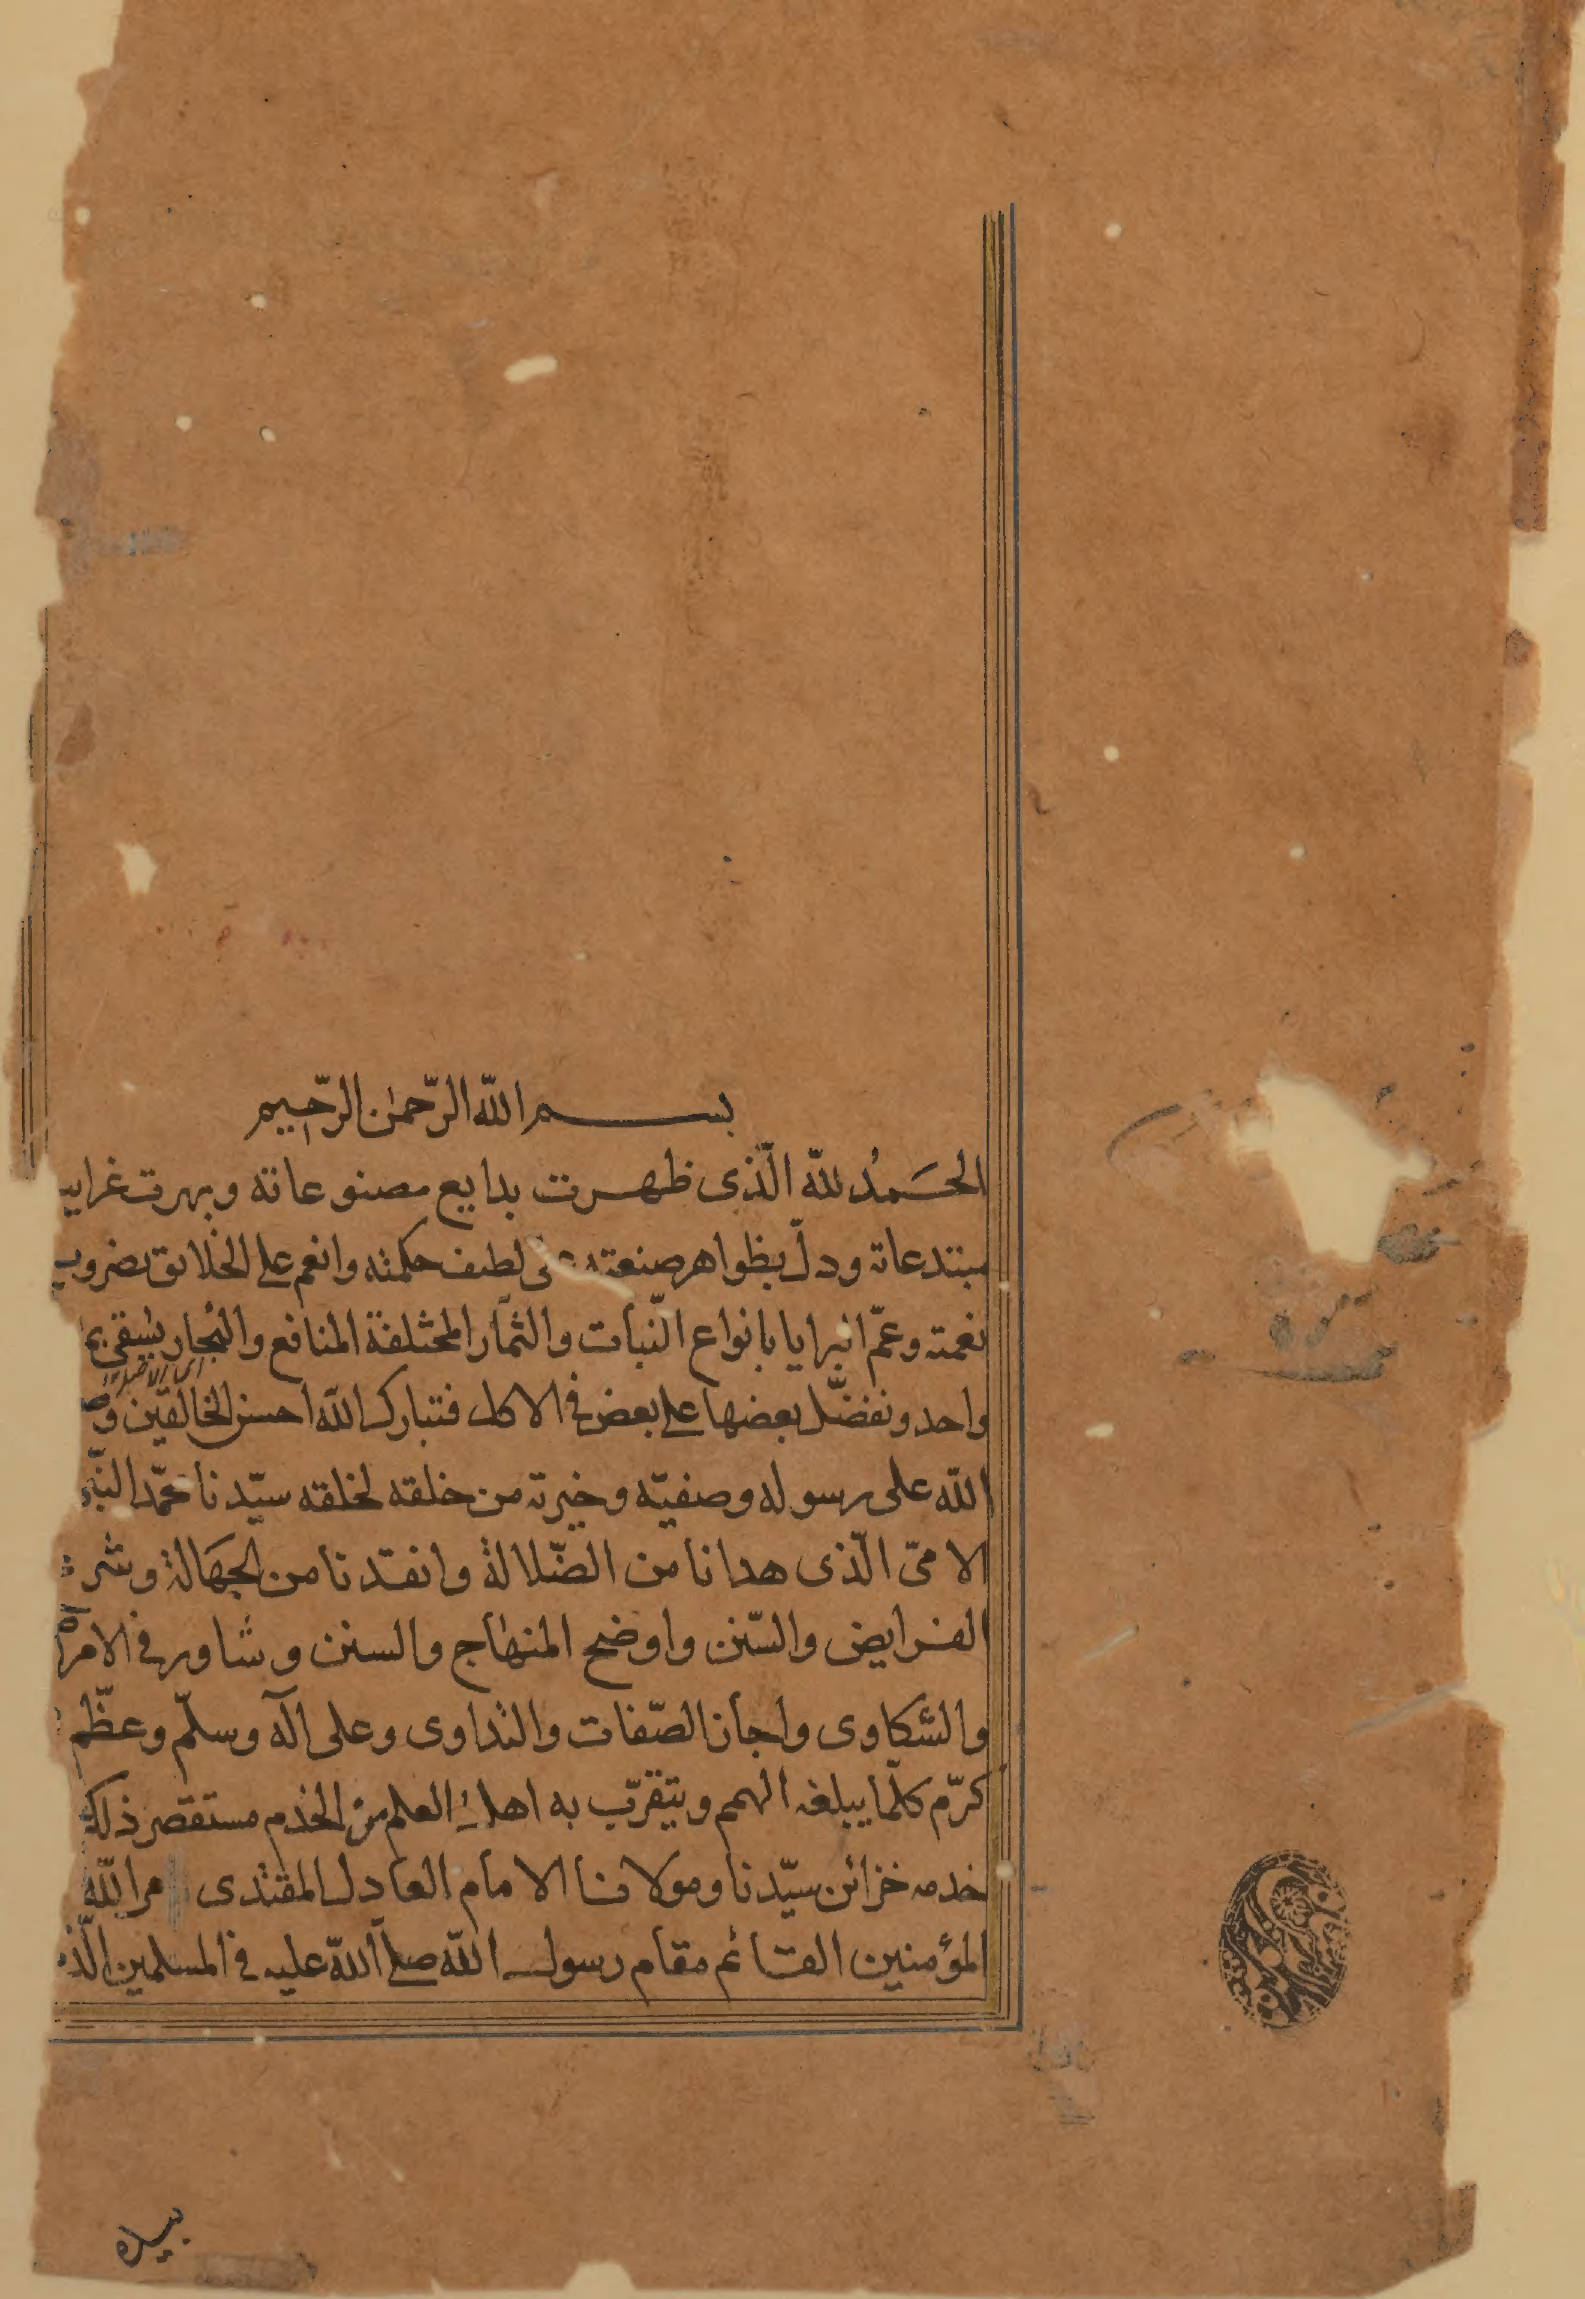 بسم الله الرّحمن الرّحيم
الحَمدُ للّه الّذى ظهرت بدايع مصنوعاته وبهرت غرايب
مبتدعاته ودلّ بظواهر صنعته على لطيف حكمته وانعم على الخلايق بضروب
نعمته وعمّ البرايا بانواع النّبات والثمار المختلفة المنافع والنجار يسقى بما
واحد ونفضّل بعضها على بعض فى الاكل فتبارك الله احسن الخالقين
الله على رسوله وصفيّه وخيرته من خلقه لخلقه سيّدنا محمّد النبى
الامّى الّذى هدانا من الضّلالة وانقدنا من الجهالة وشرع
الفرايض والسّنن واوضح المنهاج والسنن وشاور فى الامراض
والشكاوى واجاز الصّفات والتداوى وعلى اله وسلّم وعظّم
كرّم كلّما يبلغه الهمم ويتقرّب به اهل العلم من الخدم مستقصر ذلك
خدمه خزائن سيّدنا ومولانا الامام العادل المقتدى مر الله
المؤمنين القائم مقام رسول الله صلى الله عليه فى المسلمين الّذ